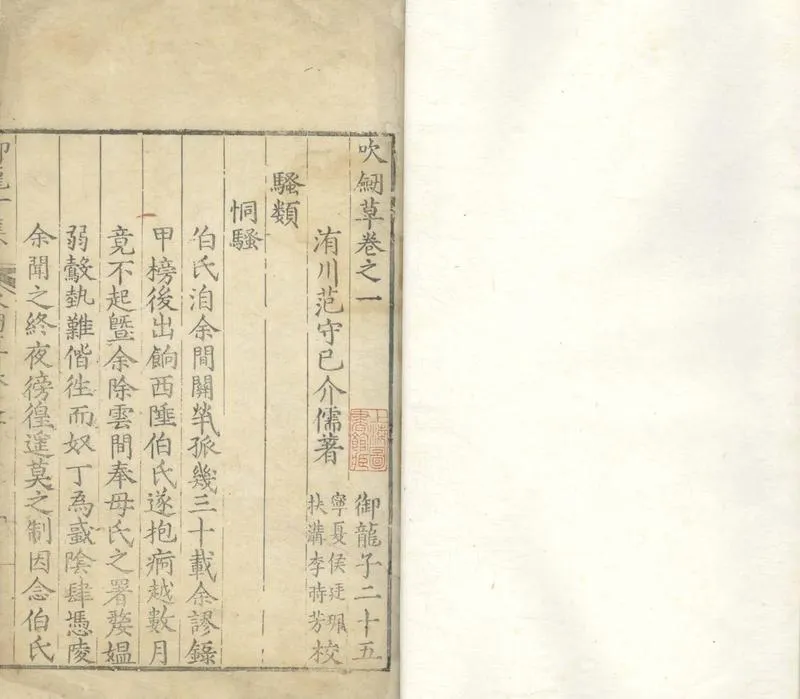 吹劒草卷之一
御龍子二十五
洧川范守己介儒著
寧夏侯廷珮
扶溝李時芳校
騷類
恫騷
伯氏洎余間關煢孤幾三十載余謬錄
甲榜後出餉西陲伯氏遂抱痾越數月
竟不起曁余除雲間奉母氏之署嫠媼
弱嫠執難偕徃而奴丁為蠚陰肆憑陵
余聞之終夜徬徨遙莫之制因念伯氏
上海圖書館藏